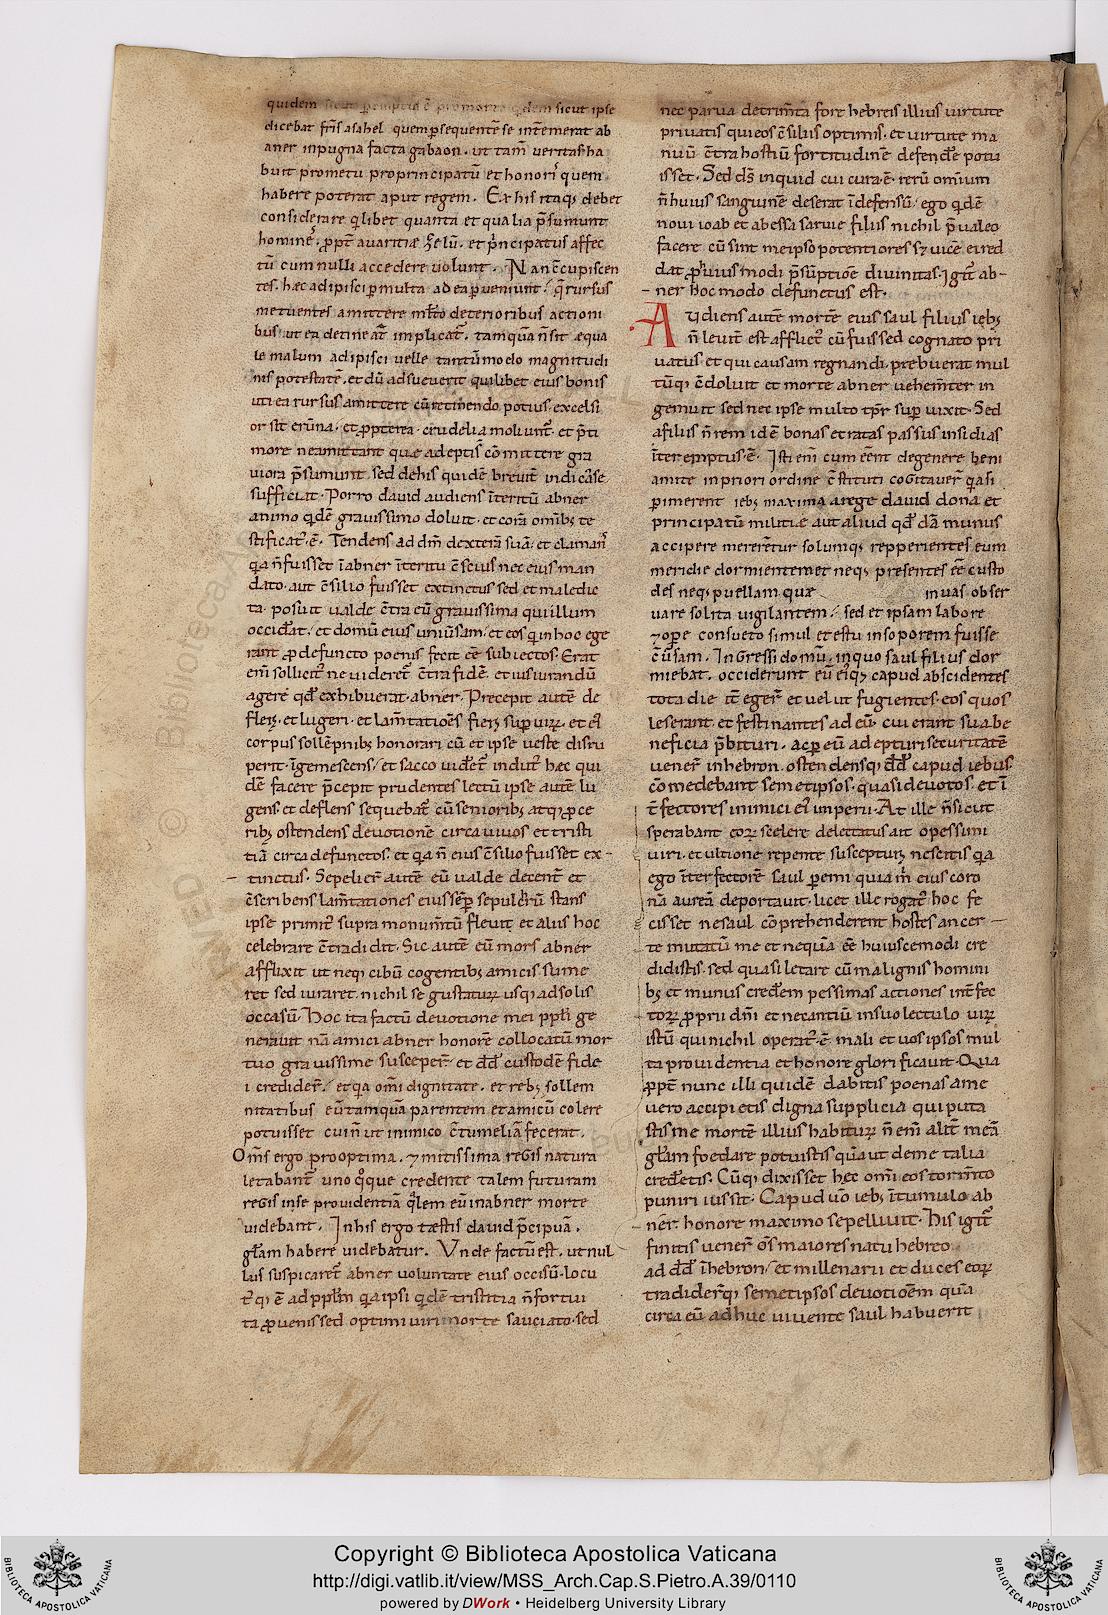 quidem sicut p̄emptus ē promorte q̇dem sicut ipse
dicebat fr̄is asahel quem ꝑsequentē se int̄emerat ab
aner inpugna facta gabaon. ut tam̄ veritas ha
buit prometu proprincipatū et honori quem
habere poterat aput regem. Ex his itaq; debet
considerare q̇libet quanta et qualia p̄sumunt
hominēs. ꝓpt̄ avaritiæ zelū. et p̄ncipatus affec
tū cum nulli accedere volunt. Nan c̄cupiscen
tes. hæc adipisci ꝑmulta ad ea ꝑveniunt. q̄ rursus
metuentes amittere ml̄to deterioribus actioni
bus ut ea detineāt implicāt. tamquā n̄ sit æqua
le malum adipisci velle tantūmodo magnitudi
nis potestatē. et dū adsueverit quilibet eius bonis
uti ea rursus amittere cū retinendo potius. excelsi
or sit erūna. et ꝓpterea. crudelia moliunt̄. et p̄ti
more ne amittant quæ adeptis cōmittere gra
viora p̄sumunt. sed de his quidē brevit̄ indicāse
sufficiat. Porro david audiens īteritū abner
animo q̇dē gravissimo doluit. et corā omīb; te
stificat᷒ ē. Tendens ad dm̄ dexterā suā. et clamans̄
q̇a n̄ fuisset ī abner īteritu c̄scius nec eius man
dato. aut c̄silio fuisset extinctus sed et maledic
ta posuit valde c̄tra eū gravissima qui illum
occiderat. et domū eius univ̄sam. et eos q̇ in hoc ege
rant ꝓ defuncto poenis fecit eē subiectos. Erat
em̄ sollicit᷒ ne videret̄ c̄tra fidē. et iusiurandū
agere qd̄ exhibuerat. abner. Precepit autē de
fleri. et lugeri. et lam̄tatioēs fieri suꝑ virū. et ei᷒
corpus sollēpnib; honorari cū et ipse veste disru
perit. īgemescens. et sacco vider̄et indut᷒ hæc qui
dē facere p̄cepit prudentes lectū ipse autē lu
gens. et deflens sequebat̄ cū seniorib; atq; ꝓce
rib; ostendens devotionē circa vivos et tristi
tiā circa defunctos. et q̇a n̄ eius c̄silio fuisset ex-
tinctus. Sepelier̄ autē eū valde decent̄ et
c̄scribens lam̄tationes eius sēꝑ sepulchrū stans
ipse primit᷒ supra monum̄tū flevit et aliis hoc
celebrare c̄tradidit. Sic autē eū mors abner
afflixit ut neq; cibū cogentib; amicis sume
ret sed iuraret nichil se gustaturū usq; ad solis
occasū. Hoc ita factū devotione mei ppl̄i ge
neravit nā amici abner honorē collocatū mor
tuo gravissime susceper̄. et dd̄ custodē fide
i credider̄. et q̇a omī dignitate. et reb; sollem
nitatibus eū tamquā parentem et amicū colere
potuisset cui n̄ ut inimico c̄tumeliā fecerat.
Om̄s ergo pro optima. ⁊ mitissima regis natura
letabant̄ uno q̇que credente talem futuram
regis in se providentiā q̇lem eū in abner morte
videbant. In his ergo tæstis david p̄cipuā.
gl̄am habere videbatur. Unde factū est. ut nul
lus suspicaret̄ abner voluntate eius occisū. locu
t᷒ q; ē ad ppl̄m q̇a ipsi q̇dē tristitia n̄ fortui
ta ꝓvenis sed optimi viri morte sauciato. sed
nec parva detrim̄ta fore hebreis illius virtute
privatis qui eos c̄siliis optimis. et virtute ma
nuū c̄tra hostiū fortitudinē defendere potu
isset. Sed ds̄ inquid cui cura ē. rerū omnium
n̄ huius sanguinē deserat īdefensū. ego q̇dē
novi ioab et abessa sarvie filius nichil p̄valeo
facere cū sint me ipso potentiores sꝫ vicē ei red
dat ꝓ huius modi p̄sūptiōe divinitas. Igit̄ ab-
ner hoc modo defunctus est.
Audiens autē mortē eius saul filius ieb;
n̄ levit̄ est afflict᷒ cū fuis sed cognato pri
vatus. et qui causam regnandi. prebuerat mul
tūq; c̄doluit et morte abner vehem̄ter in
gemuit sed nec ipse multo tp̄r suꝑ vixit. Sed
afilius n̄rem idē bonas et ratas passus insidias
īteremptus ē. Isti em̄ cum eēnt degenere beni
amite in priori ordine c̄stituti cogitaver̄ q̇asi
ꝑimerent ieb; maxima arege david dona et
principatū militiæ aut aliud qd̄ dā munus
accipere mererētur solumq; repperientes eum
meridie dormientem et neq; presentes eē custo
des neq; puellam quæ inuas obser
vare solita vigilantem. sed et ipsam labore
⁊ oꝑe consueto simul et estu in soporem fuisse
c̄v̄sam. Ingressi domū. in quo saul filius dor
miebat. occiderunt eū ei᷒q; capud abscidentes
tota die it̄ eger̄ et velut fugientes. eos quos
leserant. et festinantes ad eū. cui erant sua be
neficia p̄bituri. ac ꝑ eū adepturi securitatē
vener̄ in hebron. ostendensq; dd̄ capud iebus
cōmedebant semetipsos. quasi devotos. et ī
t̄fectores inimici ei᷒ imperii. At ille n̄ sicut
sperabant eorū scelere delectatus ait o pessimi
viri. et ultione repente suscepturi nescitis q̇a
ego īterfectorē saul ꝑemi quia m̄ eius coro
nā aureā deportavit. licet ille rogat᷒ hoc fe
cisset ne saul cōprehenderent hostes an cer-
te mutatū me et nequā eē huiuscemodi cre
didistis. sed quasi letare cū malignis homini
b; et munus credem pessimas actiones int̄fec
torū ꝓprii dm̄i et necantiū in suo lectulo virū
istū qui nichil operat᷒ ē mali et vos ipsos mul
ta providentia et honore glorificavit. Qua
ꝓpt̄ nunc illi quidē dabitis poenas ame
vero accipietis digna supplicia qui puta
stis me mortē illius habiturū n̄ em̄ alit̄ meā
gl̄am foedare potuistis quā ut de me talia
credretis. Cūq; dixisset hec omī eos torm̄to
puniri iussit. Capud vō ieb; ītumulo ab
ner̄ honore maximo sepellivit. His igit᷒
finitis vener̄ ōs maiores natu hebreo
ad dd̄ īhebron. et millenarii et duces eorū
tradider̄q; semetipsos devotioēm quā
circa eū adhuc vivente saul habuerit
Copyright © Biblioteca Apostolica Vaticana
http://digi.vatlib.it/view/MSS_Arch.Cap.S.Pietro.A.39/0110
powered by DWork • Heidelberg University Library